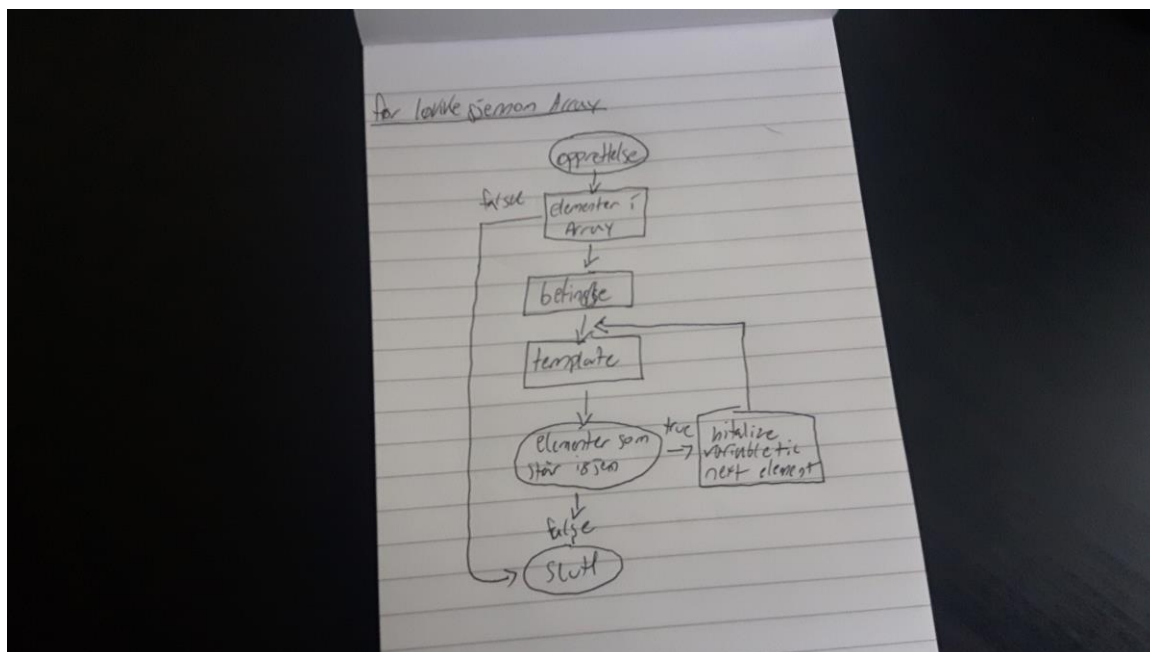 for løkke gjennom Array
opprettelse
false
elementer i
Array
betingelse
template
elementer som
står igjen
true
initalize
variable til
next element
false
Slutt